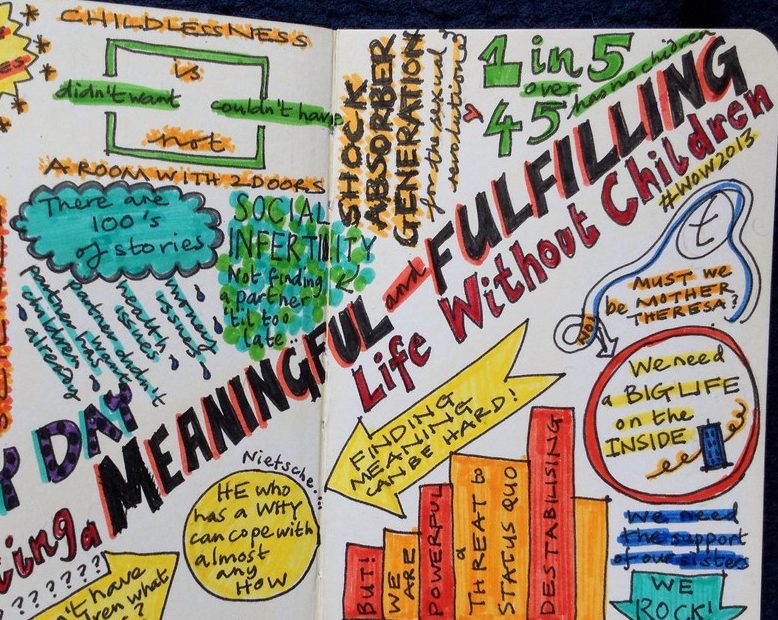 CHILDLESSNESS
is
didn't want
couldn't have
not
A ROOM WITH 2 DOORS
There are
100's
of stories
partner has
children
already
partner didn't
want
health
issues
money
issues
SOCIAL
INFERTILITY
Not finding
a partner
'til too
late..
SHOCK
ABSORBER
GENERATION
for the sexual
revolution?
1 in 5
over
45
has no children
Y DAY
MEANINGFUL and FULFILLING
Life Without Children
#WOW2013
ing a
t
MUST we
be MOTHER
THERESA?
NO!
We need
a BIG LIFE
on the
INSIDE
FINDING
MEANING
CAN BE HARD!
Nietsche...
HE who
has a WHY
can cope with
almost
any
HOW
BUT!
WE
ARE
POWERFUL
a
THREAT to
STATUS QUO
DESTABILISING
We need
the support
of our sisters
WE
ROCK!
???????
n't have
dren what
?